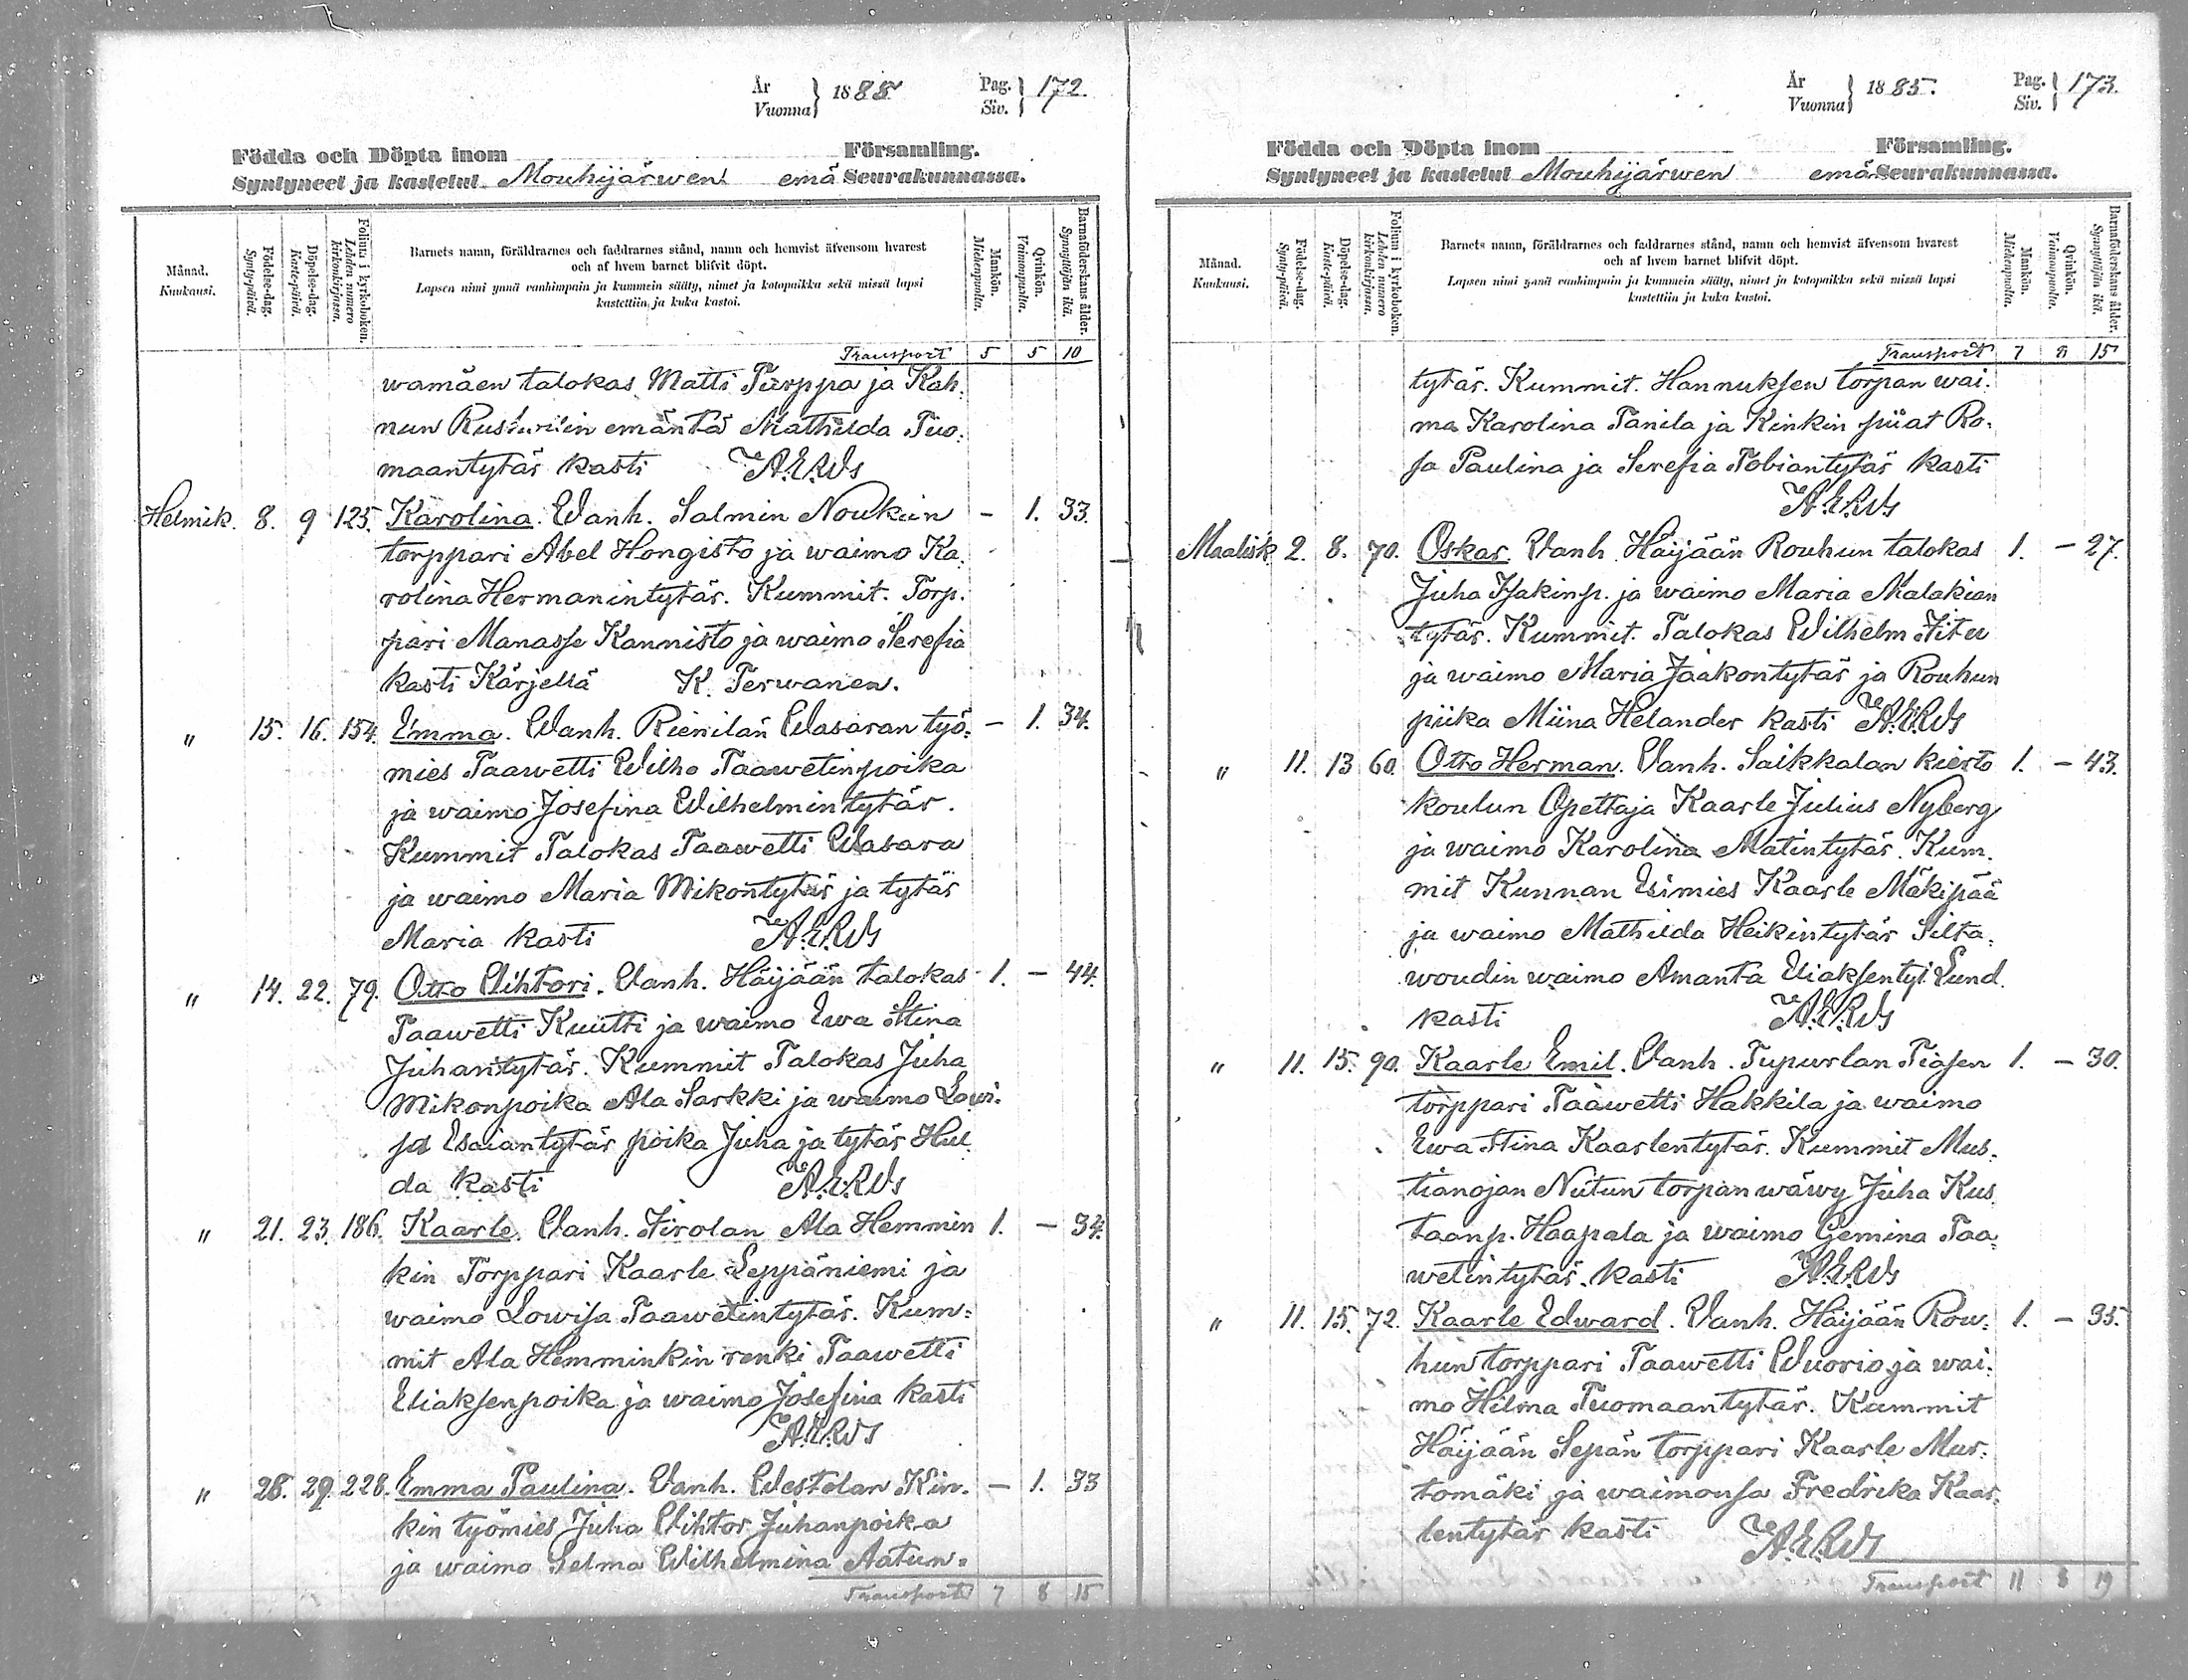 År
Vuonna } 1885 Pag.
Siv. } 172.
Födda och Döpta inom Församling.
Syntyneet ja kastetut Mouhijärwen emä Seurakunnassa.
Månad.
Kuukausi.
Födelse-dag.
Synty-päivä.
Döpelse-dag.
Kaste-päivä.
Folium i kyrkoboken.
Lehden numero kirkonkirjassa.
Barnets namn, föräldrarnes och faddrarnes stånd, namn och hemvist äfvensom hvarest
och af hvem barnet blifvit döpt.
Lapsen nimi ynnä vanhimpain ja kummein sääty, nimet ja kotopaikka sekä missä lapsi
kastettiin ja kuka kastoi.
Mankön.
Miehenpuolta.
Qvinkön.
Vaimonpuolta.
Barnaföderskans ålder.
Synnyttäjän ikä.
Transport 5 5 10
wamäen talokas Matti Turppa ja Kah-
nun emäntä Mathilda Tuo-
maantytär kasti A.E.RWs
Helmik. 8. 9 125. Karolina. Wanh. Salmin Noukin – 1. 33.
torppari Abel Hongisto ja waimo Ka-
rolina Hermanintytär. Kummit. Torp-
pari Manasse Kannisto ja waimo Serefia
kasti Kärjellä K. Terwanen.
" 15. 16. 154. Emma. Wanh. Rienilän Wasaran työ- – 1. 34.
mies Taawetti Wilho Taawetinpoika
ja waimo Josefina Wilhelmintytär.
Kummit Talokas Taawetti Wasara
ja waimo Maria Mikontytär ja tytär
Maria kasti A.E.RWs
" 14. 22. 79. Otto Wihtori. Wanh. Häijään talokas 1. – 44.
Taawetti Kuutti ja waimo Ewa Stina
Juhantytär. Kummit Talokas Juha
Mikonpoika Ala Sarkki ja waimo Lowi-
sa Esaiantytär poika Juha ja tytär Hul-
da kasti A.E.RWs
" 21. 23. 186. Kaarle. Wanh. Jirolan Ala Hemmin 1. – 34.
kin Torppari Kaarle Leppäniemi ja
waimo Lowisa Taawetintytär. Kum-
mit Ala Hemminkin renki Taawetti
Eliaksenpoika ja waimo Josefina kasti
A.E.RWs
" 28. 29. 228. Emma Paulina. Wanh. Westolan Kin- – 1. 33
kin työmies Juha Wihtor Juhanpoika
ja waimo Selma Wilhelmina Aatun-
Transport 7 8 15
År
Vuonna } 1885. Pag.
Siv. } 173.
Födda och Döpta inom Församling.
Syntyneet ja kastetut Mouhijärwen emä Seurakunnassa.
Månad.
Kuukausi.
Födelse-dag.
Synty-päivä.
Döpelse-dag.
Kaste-päivä.
Folium i kyrkoboken.
Lehden numero kirkonkirjassa.
Barnets namn, föräldrarnes och faddrarnes stånd, namn och hemvist äfvensom hvarest
och af hvem barnet blifvit döpt.
Lapsen nimi ynnä vanhimpain ja kummein sääty, nimet ja kotopaikka sekä missä lapsi
kastettiin ja kuka kastoi.
Mankön.
Miehenpuolta.
Qvinkön.
Vaimonpuolta.
Barnaföderskans ålder.
Synnyttäjän ikä.
Transport 7 8 15
tytär. Kummit. Hannuksen torpan wai-
mo Karolina Tanila ja Kinkin piiat Ro-
sa Paulina ja Serefia Tobiantytär kasti
A.E.RWs
Maalisk 2. 8. 70. Oskar. Wanh. Häijään Rouhun talokas 1. – 27.
Juha Isakinp. ja waimo Maria Malakian
tytär. Kummit. Talokas Wilhelm
ja waimo Maria Jaakontytär ja Rouhun
piika Miina Helander kasti A.E.RWs
" 11. 13 60. Otto Herman. Wanh. Saikkalan kierto 1. – 43.
koulun Opettaja Kaarle Julius Nyberg
ja waimo Karolina Matintytär. Kum-
mit Kunnan Esimies Kaarle Mäkipää
ja waimo Mathilda Heikintytär Silta-
woudin waimo Amanta Eliaksentyt. Lund.
kasti A.E.RWs
" 11. 15. 90. Kaarle Emil. Wanh. Tupurlan Tiasen 1. – 30.
torppari Taawetti Hakkila ja waimo
Ewa Stina Kaarlentytär. Kummit Mus-
tianojan Niitun torpan wäwy Juha Kus-
taanp. Haapala ja waimo Gemina Taa-
wetintytär. kasti A.E.RWs
" 11. 15. 72. Kaarle Edward. Wanh. Häijään Rou- 1. – 35.
hun torppari Taawetti Wuorio ja wai-
mo Hilma Tuomaantytär. Kummit
Häijään Sepän torppari Kaarle Mus-
tomäki ja waimonsa Fredrika Kaar-
lentytär kasti A.E.RWs
Transport 11 8 19